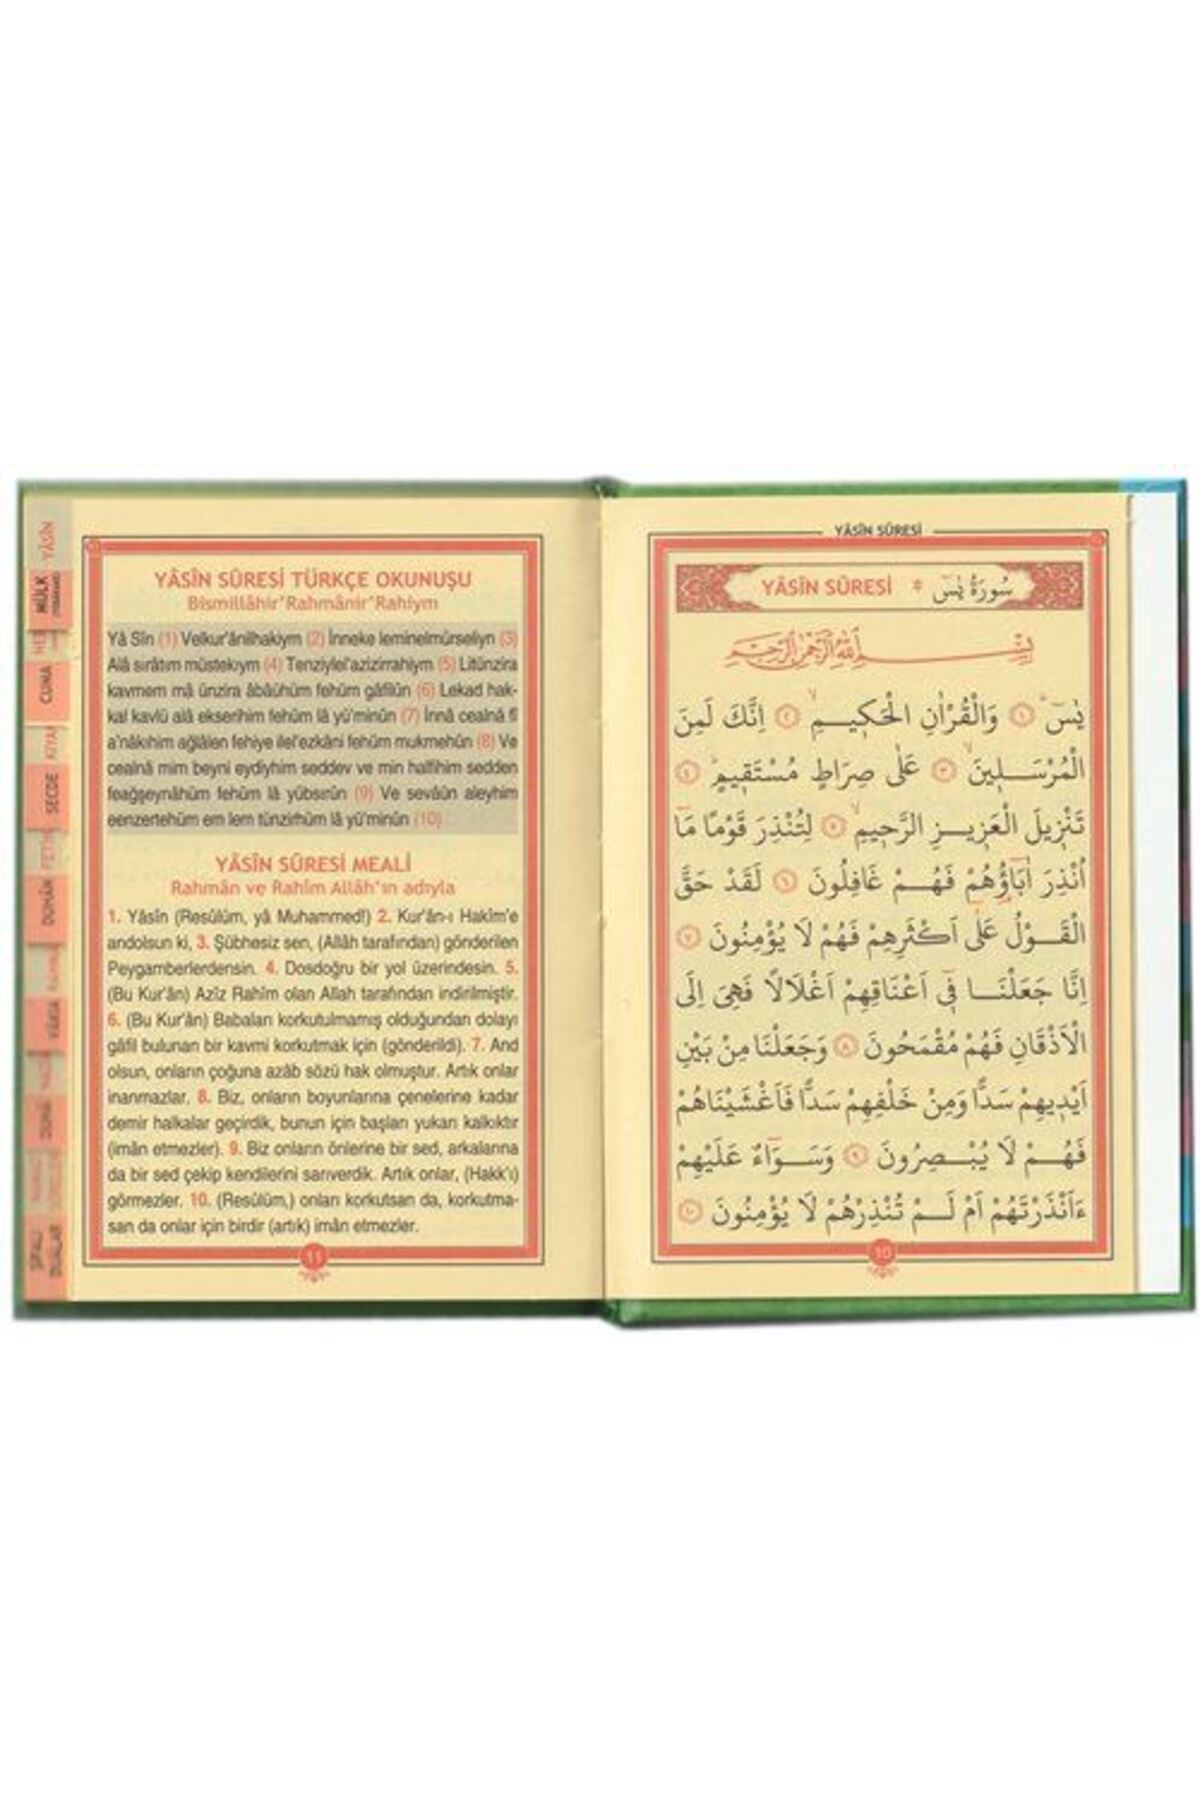 YÂSÎN SÛRESİ
YÂSÎN SÛRESİ * سُورَةُ يٰسٓ
بِسْمِ اللّٰهِ الرَّحْمٰنِ الرَّحِيمِ
يٰسٓ ۚ ﴿١﴾ وَالْقُرْاٰنِ الْحَكِيمِ ۙ ﴿٢﴾ اِنَّكَ لَمِنَ
الْمُرْسَلِينَ ۙ ﴿٣﴾ عَلٰى صِرَاطٍ مُسْتَقِيمٍ ۜ ﴿٤﴾
تَنْزِيلَ الْعَزِيزِ الرَّحِيمِ ۙ ﴿٥﴾ لِتُنْذِرَ قَوْمًا مَٓا
اُنْذِرَ اٰبَٓاؤُ۬هُمْ فَهُمْ غَافِلُونَ ﴿٦﴾ لَقَدْ حَقَّ
الْقَوْلُ عَلٰٓى اَكْثَرِهِمْ فَهُمْ لَا يُؤْمِنُونَ ﴿٧﴾
اِنَّا جَعَلْنَا فِٓي اَعْنَاقِهِمْ اَغْلَالًا فَهِيَ اِلَى
الْاَذْقَانِ فَهُمْ مُقْمَحُونَ ﴿٨﴾ وَجَعَلْنَا مِنْ بَيْنِ
اَيْدِيهِمْ سَدًّا وَمِنْ خَلْفِهِمْ سَدًّا فَاَغْشَيْنَاهُمْ
فَهُمْ لَا يُبْصِرُونَ ﴿٩﴾ وَسَوَٓاءٌ عَلَيْهِمْ
ءَاَنْذَرْتَهُمْ اَمْ لَمْ تُنْذِرْهُمْ لَا يُؤْمِنُونَ ﴿١٠﴾
10
YÂSÎN SÛRESİ TÜRKÇE OKUNUŞU
Bismillâhir'Rahmânir'Rahîym
Yâ Sîn (1) Velkur'ânilhakiym (2) İnneke leminelmürseliyn (3)
Alâ sırâtım müstekıym (4) Tenziylel'azizirrahiym (5) Litünzira
kavmem mâ ünzira âbâühüm fehüm gâfilûn (6) Lekad hak-
kal kavlü alâ ekserihim fehüm lâ yü'minûn (7) İnnâ cealnâ fî
a'nâkıhim ağlâlen fehiye ilel'ezkâni fehüm mukmehûn (8) Ve
cealnâ mim beyni eydiyhim seddev ve min halfihim sedden
feağşeynâhüm fehüm lâ yübsırûn (9) Ve sevâün aleyhim
eenzertehüm em lem tünzirhüm lâ yü'minûn (10)
YÂSÎN SÛRESİ MEALİ
Rahmân ve Rahîm Allâh'ın adıyla
1. Yâsîn (Resûlüm, yâ Muhammed!) 2. Kur'ân-ı Hakîm'e
andolsun ki, 3. Şübhesiz sen, (Allâh tarafından) gönderilen
Peygamberlerdensin. 4. Dosdoğru bir yol üzerindesin. 5.
(Bu Kur'ân) Azîz Rahîm olan Allah tarafından indirilmiştir.
6. (Bu Kur'ân) Babaları korkutulmamış olduğundan dolayı
gâfil bulunan bir kavmi korkutmak için (gönderildi). 7. And
olsun, onların çoğuna azâb sözü hak olmuştur. Artık onlar
inanmazlar. 8. Biz, onların boyunlarına çenelerine kadar
demir halkalar geçirdik, bunun için başları yukarı kalkıktır
(imân etmezler). 9. Biz onların önlerine bir sed, arkalarına
da bir sed çekip kendilerini sarıverdik. Artık onlar, (Hakk'ı)
görmezler. 10. (Resûlüm,) onları korkutsan da, korkutma-
san da onlar için birdir (artık) imân etmezler.
11
YÂSÎN
MÜLK
CUMA
KIYAM
SECDE
FETİH
DUHÂN
VÂKIA
DUHÂ
ŞİFALI
DUALAR